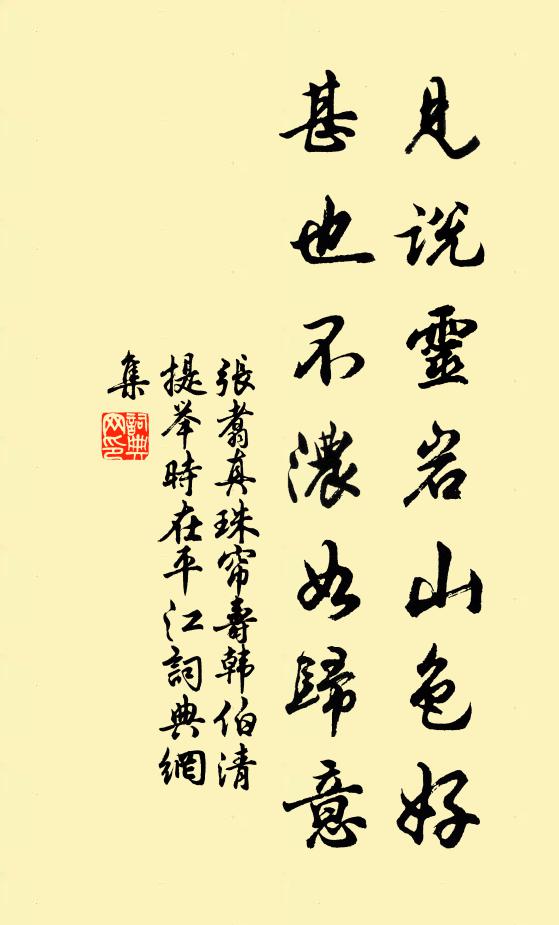 見説靈岩山色好
甚也不濃如歸意
張翥真珠帘壽韩伯清
提举時在平江詞典網
集
詞典网印